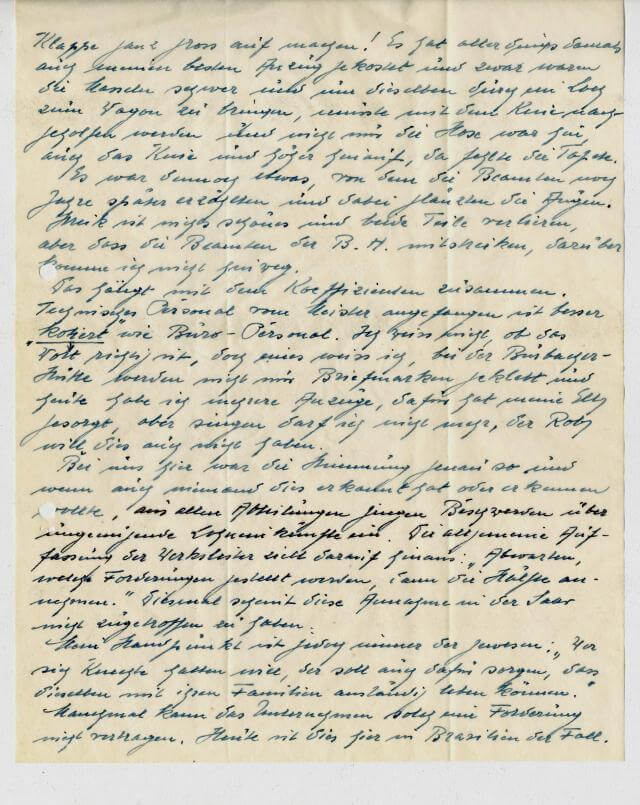 Klappe ganz gross auf machen! Es hat allerdings damals
auch meinen besten Anzug gekostet und zwar waren
die Masseln schwer und um dieselben durch ein Loch
zum Wagon zu bringen, musste mit dem Knie nach-
geholfen werden und nicht nur die Hose war hin,
auch das Knie und höher hinauf, da fehlte die Tapete.
Es war dennoch etwas, von dem die Beamten noch
Jahre später erzählten und dabei glänzten die Augen.
Streik ist nichts schönes und beide Teile verlieren,
aber dass die Beamten der B. H. mitstreiken, darüber
komme ich nicht hinweg.
Das hängt mit dem Koeffizienten zusammen.
Technisches Personal vom Meister angefangen ist besser
"kotiert" wie Büro-Personal. Ich weiss nicht, ob das
Wort richtig ist, doch eines weiss ich, bei der Burbacher-
Hütte werden nicht nur Briefmarken geklebt und
heute habe ich mehrere Anzüge, dafür hat meine
gesorgt, aber singen darf ich nicht mehr, der Rob
will dies auch nicht haben.
Bei uns hier war die Stimmung genau so und
wenn auch niemand dies erkannt hat oder erkennen
wollte, aus allen Abteilungen gingen Beschwerden über
ungenügende Lohneinkünfte ein. Die allgemeine Auf-
fassung der Werksleiter zielt darauf hinaus: "Abwarten,
welche Forderungen gestellt werden, dann die Hälfte an-
nehmen." Diesmal scheint diese Annahme in der Saar
nicht zugetroffen zu haben.
Mein Standpunkt ist jedoch immer der gewesen: "Wer
sich Knechte halten will, der soll auch dafür sorgen, dass
dieselben mit ihren Familien anständig leben können."
Manchmal kann das Unternehmen solch eine Forderung
nicht vertragen. Heute ist dies hier in Brasilien der Fall.